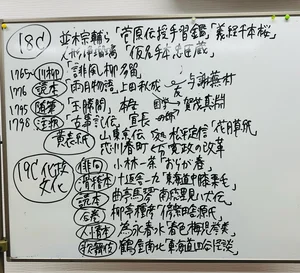 18C 並木宗輔ら「菅原伝授手習鑑」「義経千本桜」
人形浄瑠璃「仮名手本忠臣蔵」
1765〜 川柳「誹風柳多留」
1776 読本「雨月物語」上田秋成 友 与謝蕪村
1795 随筆「玉勝間」本居 国学 賀茂真淵
1798 注釈「古事記伝」宣長 師
黄表紙 山東京伝 松平定信
恋川春町 寛政の改革
19C 化政文化 俳句 小林一茶「おらが春」
滑稽本 十返舎一九「東海道中膝栗毛」
読本 曲亭馬琴「南総里見八犬伝」
合巻 柳亭種彦「偐紫田舎源氏」
人情本 為永春水「春色梅児誉美」
歌舞伎 鶴屋南北「東海道四谷怪談」